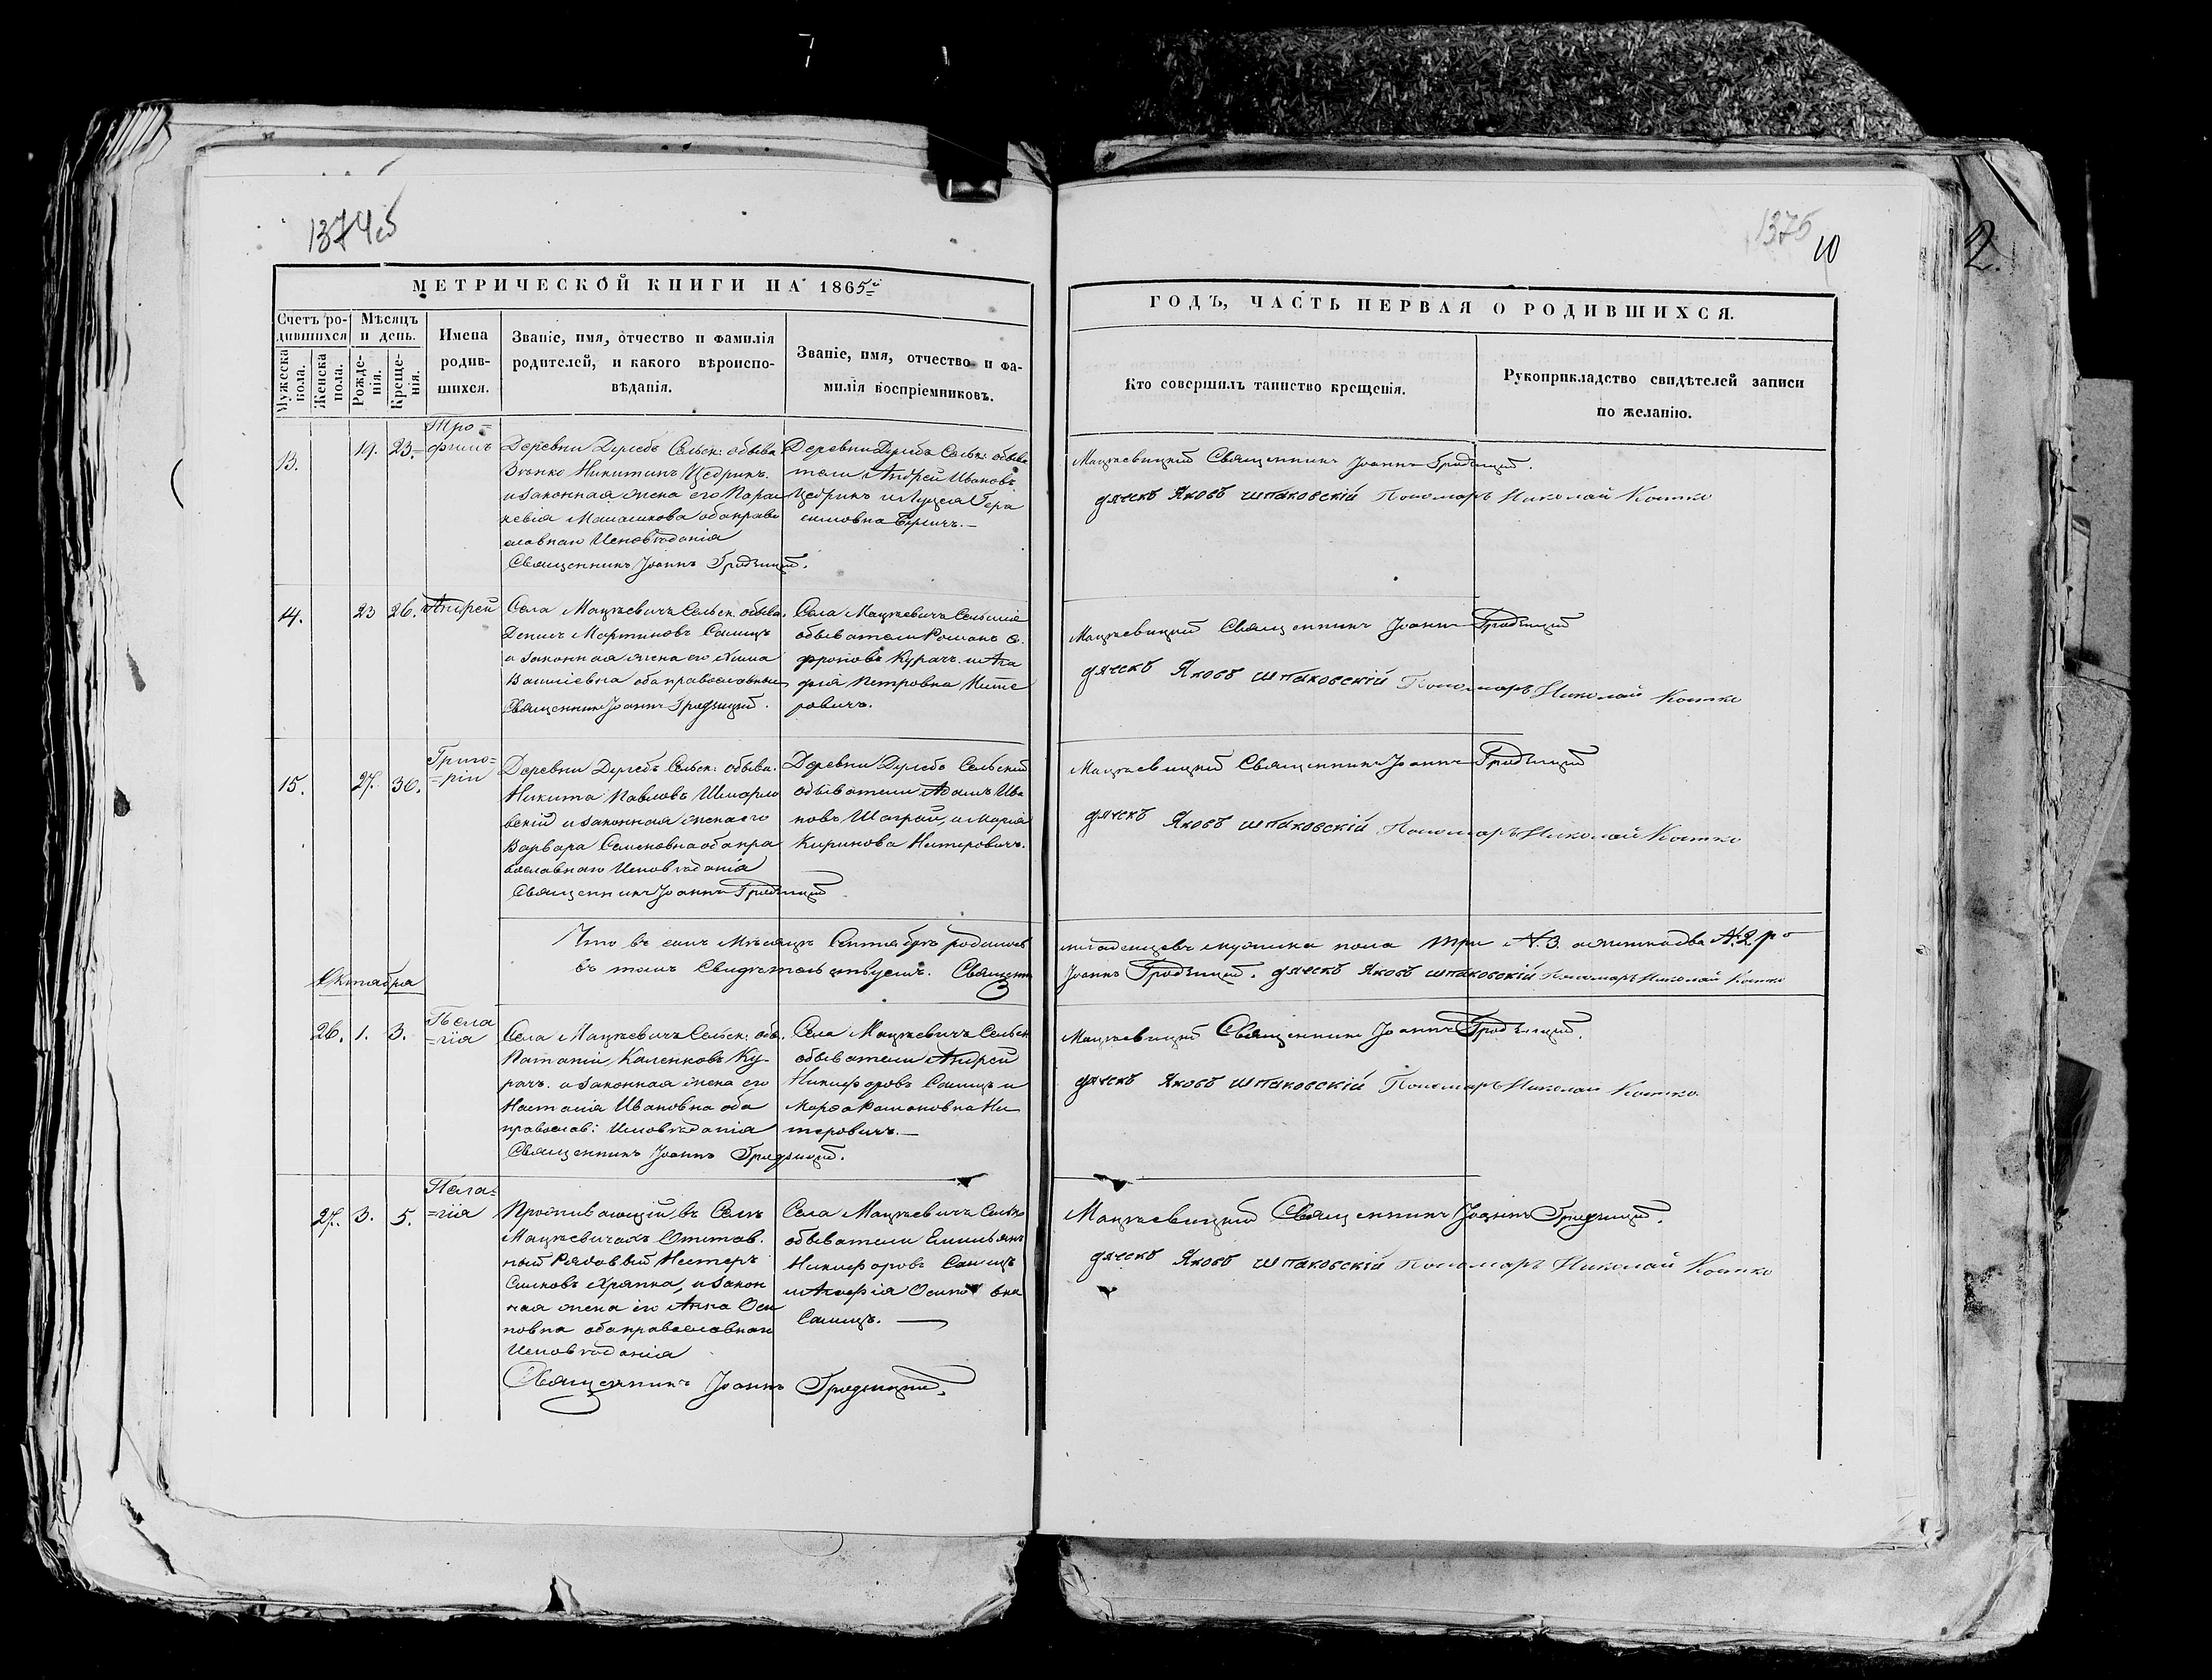 1374об
МЕТРИЧЕСКОЙ КНИГИ НА 1865й
Счетъ родившихся
Мужеска пола.
Женска пола.
Мѣсяцъ и день.
Рожденія.
Крещенія.
Имена родившихся.
Званіе, имя, отчество и фамилія
родителей, и какого вѣроиспо-
вѣданія.
Званіе, имя, отчество и фа-
милія воспріемниковъ.
13.
19.
23.
Тро=
фимъ
Деревни Сельск: обыва
Никитинъ Цедрикъ.
и законная жена его Парас
кевія обаправо
славнаго Исповѣданія
Священникъ Іоаннъ Гродзицкій.
Деревни Сельк: обыва
тели Андрей Ивановъ
Цедрикъ и Луція Гера
симовна
14.
23
26.
Андрей
Села Мацкевичъ Сельск. обыва.
Денисъ Мартиновъ
и законная жена его
Василіевна обаправославные
Священникъ Іоаннъ Гродзицкій.
Села Мацкевичъ Сельскіе
обыватели Романъ С.
фроновъ Курачъ. и Ага
фія Петровна Ните
ровичъ.
15.
27.
30.
Григо=
=рій
Деревни Сельск: обыва.
Никита Павловъ
и законная жена его
Варвара Семеновна обапра
вославнаго Исповѣданія
Священникъ Іоаннъ Гродзицкій
Деревни Сельскій
обыватели Адамъ Ива
новъ и Марія
Киринова Нитеровичъ.
Что въ семъ Мѣсяцѣ Сентябрѣ родилось
въ томъ Свидѣтельствуемъ. Священни
Октября
26.
1.
3.
Пела
=гія
Села Мацкевичъ Сельск: об.
Каленковъ Ку-
рачъ. и законная жена его
Настасія Ивановна оба
православ: Исповѣданія
Священникъ Іоаннъ Гродзицкій.
Села Мацкевичъ Сельск
обыватели Андрей
Никифоровъ и
Марѳа Романовна Ни
теровичъ.—
27.
3.
5.
Пела=
=гія
Проживающій въ Селѣ
Мацкевичахъ Отстав.
ный Рядовый Нестеръ
Храпко, и закон
ная жена его Анна Оси
повна обаправославнаго
Исповѣданія
Священникъ Іоаннъ Гродзицкій.
Села Мацкевичъ Сельск
обыватели Емильянъ
Никифоровъ
и Агафія Осиповна
1375
10
2.
ГОДЪ, ЧАСТЬ ПЕРВАЯ О РОДИВШИХСЯ.
Кто совершилъ таинство крещенія.
Рукоприкладство свидѣтелей записи
по желанію.
Мацкевицкій Священникъ Іоаннъ Гродзицкій.
дячекъ Яковъ Шпаковскій Пономаръ Николай Костко
Мацкевицкій Священникъ Іоаннъ Гродзицкій
дячекъ Яковъ Шпаковскій Пономаръ Николай Костко
Мацкевицкій Священникъ Іоаннъ Гродзицкій
дячекъ Яковъ Шпаковскій Пономаръ Николай Костко
младенцевъ мужеска пола три №3. а женска два №2. ро
Іоаннъ Гродзицкій. дячекъ Яковъ Шпаковскій Пономаръ Николай Костко
Мацкевицкій Священникъ Іоаннъ Гродзицкій.
дячекъ Яковъ Шпаковскій Пономаръ Николай Костко.
Мацкевицкій Священникъ Іоаннъ Гродзицкій.
дячекъ Яковъ Шпаковскій Пономаръ Николай Костко